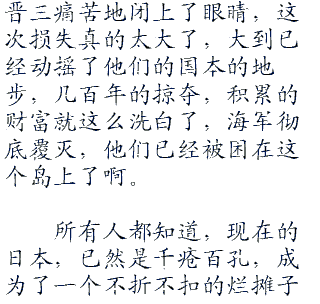 晋三痛苦地闭上了眼睛，这
次损失真的太大了，大到已
经动摇了他们的国本的地
步，几百年的掠夺，积累的
财富就这么洗白了，海军彻
底覆灭，他们已经被困在这
个岛上了啊。
所有人都知道，现在的
日本，已然是千疮百孔，成
为了一个不折不扣的烂摊子